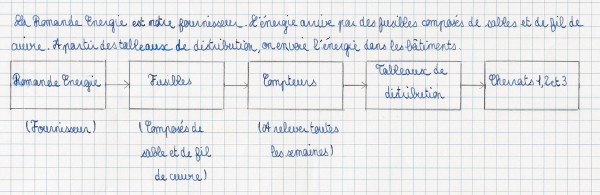 La Romande Energie est notre fournisseur. L'énergie arrive par des fusibles composés de sables et de fil de
cuivre. A partir des tableaux de distribution, on envoie l'énergie dans les bâtiments.
Romande Energie
Fusibles
Compteurs
Tableaux de
distribution
Cherrats 1, 2 et 3
(Fournisseur)
(Composés de
sable et de fil
de cuivre)
(A relever toutes
les semaines)